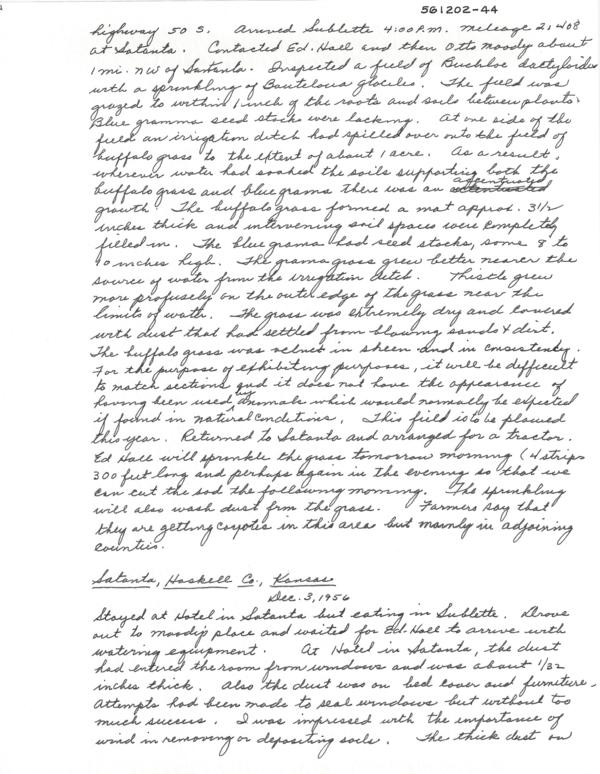 561202-44
highway 50 S. Arrived Sublette 4:00 P.M. mileage 21408
at Satanta. Contacted Ed. Hall and then Otto Moody about
1 mi. NW of Santanta. Inspected a field of Buchloe dactyloides
with a sprinkling of Bouteloua gracilis. The field was
grazed to within 1 inch of the roots and soils between plants.
Blue gramma seed stocks were lacking. At one side of the
field an irrigation ditch had spilled over onto the field of
buffalo grass to the extent of about 1 acre. As a result,
wherever water had soaked the soils supporting both the
buffalo grass and blue grama there was an accentuated
growth. The buffalo grass formed a mat approx. 3 1/2
inches thick and intervening soil spaces were completely
filled in. The blue grama had seed stocks, some 8 to
10 inches high. The grama grass grew better nearer the
source of water from the irrigation ditch. Thistle grew
more profusely on the outer edge of the grass near the
limits of water. The grass was extremely dry and covered
with dust that had settled from blowing sands & dirt.
The buffalo grass was velvet in sheen and in consistency.
For the purpose of exhibiting purposes, it will be difficult
to match sections and it does not have the appearance of
having been used by animals which would normally be expected
if found in natural conditions. This field is to be plowed
this year. Returned to Satanta and arranged for a tractor.
Ed Hall will sprinkle the grass tomorrow morning (4 strips
300 feet long and perhaps again in the evening so that we
can cut the sod the following morning. The sprinkling
will also wash dust from the grass. Farmers say that
they are getting coyotes in this area but mainly in adjoining
counties.
Satanta, Haskell Co., Kansas
Dec. 3, 1956
Stayed at Hotel in Satanta but eating in Sublette. Drove
out to Moody's place and waited for Ed Hall to arrive with
watering equipment. At Hotel in Satanta, the dust
had entered the room from windows and was about 1/32
inches thick. Also the dust was on bed cover and furniture.
Attempts had been made to seal windows but without too
much success. I was impressed with the importance of
wind in removing or depositing soils. The thick dust on